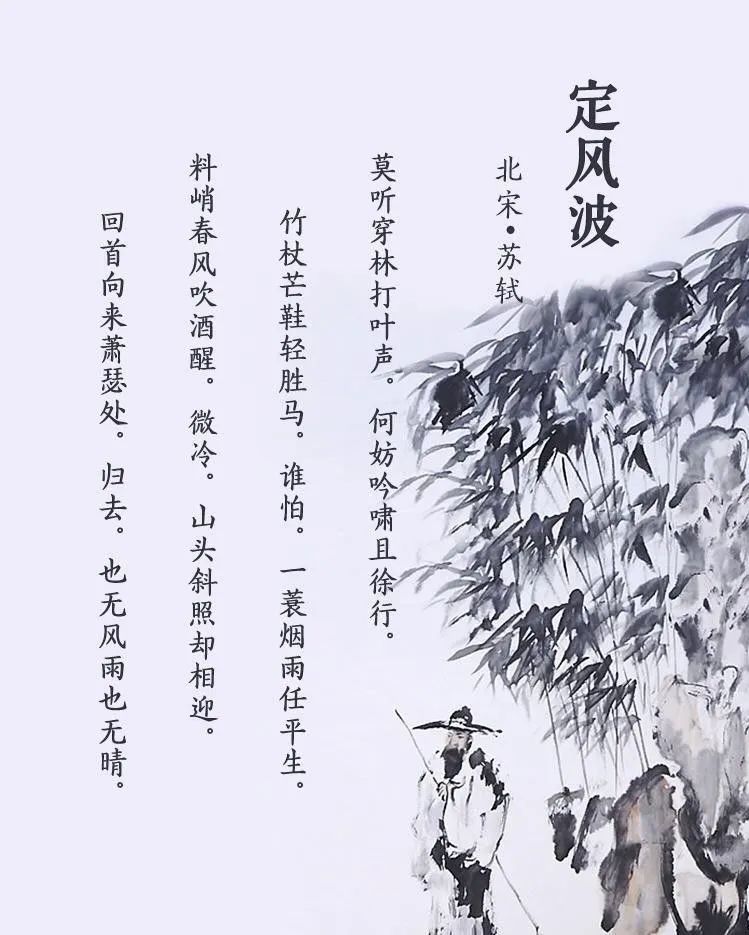 定风波
北宋·苏轼
莫听穿林打叶声。何妨吟啸且徐行。
竹杖芒鞋轻胜马。谁怕。一蓑烟雨任平生。
料峭春风吹酒醒。微冷。山头斜照却相迎。
回首向来萧瑟处。归去。也无风雨也无晴。